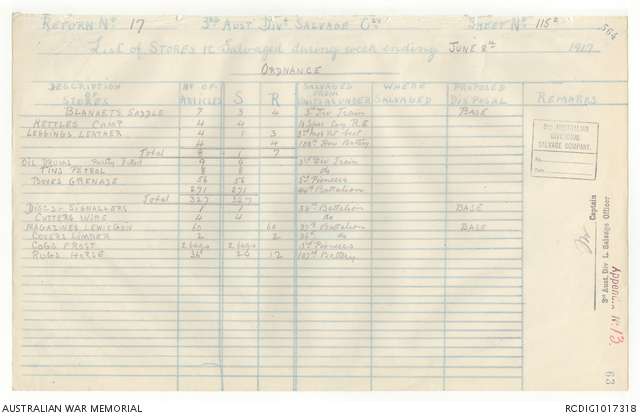 RETURN No 17 3rd AUST. DIVn SALVAGE Coy SHEET No 115
List of STORES &c Salvaged during week ending JUNE 8th 1917
ORDNANCE
DESCRIPTION OF STORES No OF ARTICLES S R SALVAGED FROM UNITS AS UNDER WHERE SALVAGED PROPOSED DISPOSAL REMARKS
BLANKETS SADDLE 7 3 4 3rd Div Train BASE
KETTLES CAMP 4 4 R.E
LEGGINGS LEATHER 4 1 3
4 4 Battery
Total 8 1 7
OIL DRUMS Partly filled 9 9 3rd Div Train
TINS PETROL 8 8 do
BOXES GRENADE 56 56 Pioneers
271 271 44th Battalion
Total 327 327
DISCS SIGNALLERS 1 1 Battalion BASE
CUTTERS WIRE 4 4 do
MAGAZINES LEWIS GUN 60 60 Battalion BASE
COVERS LIMBER 2 2 do
COGS FROST 2 bags 2 bags Pioneers
RUGS HORSE 36 24 12 107th Battery
3rd AUSTRALIAN
DIVISIONAL
SALVAGE COMPANY.
No.
Date
Captain
3rd Aust. Div l. Salvage Officer
Appendix No 13
63
AUSTRALIAN WAR MEMORIAL
RCDIG1017318